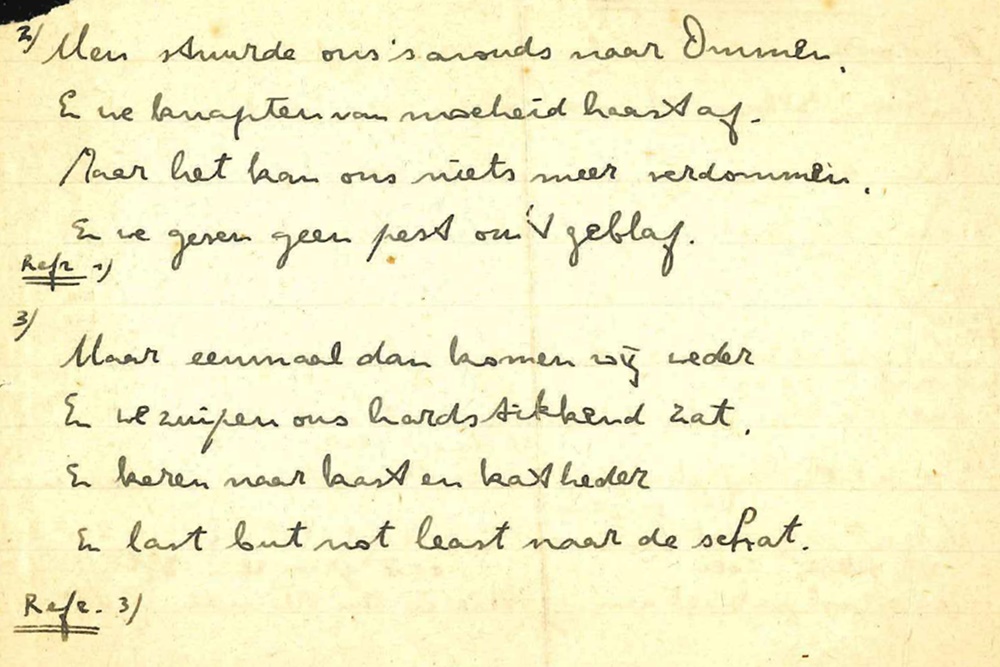 2) Men stuurde ons 's avonds naar Ommen,
En we knapten van moeheid haast af.
Maar het kan ons niets meer verdommen,
En we geven geen pest om 't geblaf.
Refr 1)
3)
Maar eenmaal dan komen wij weder
En we zuipen ons hardstikkend zat,
En keren naar kast en katheder
En last but not least naar de schat.
Refr. 3)